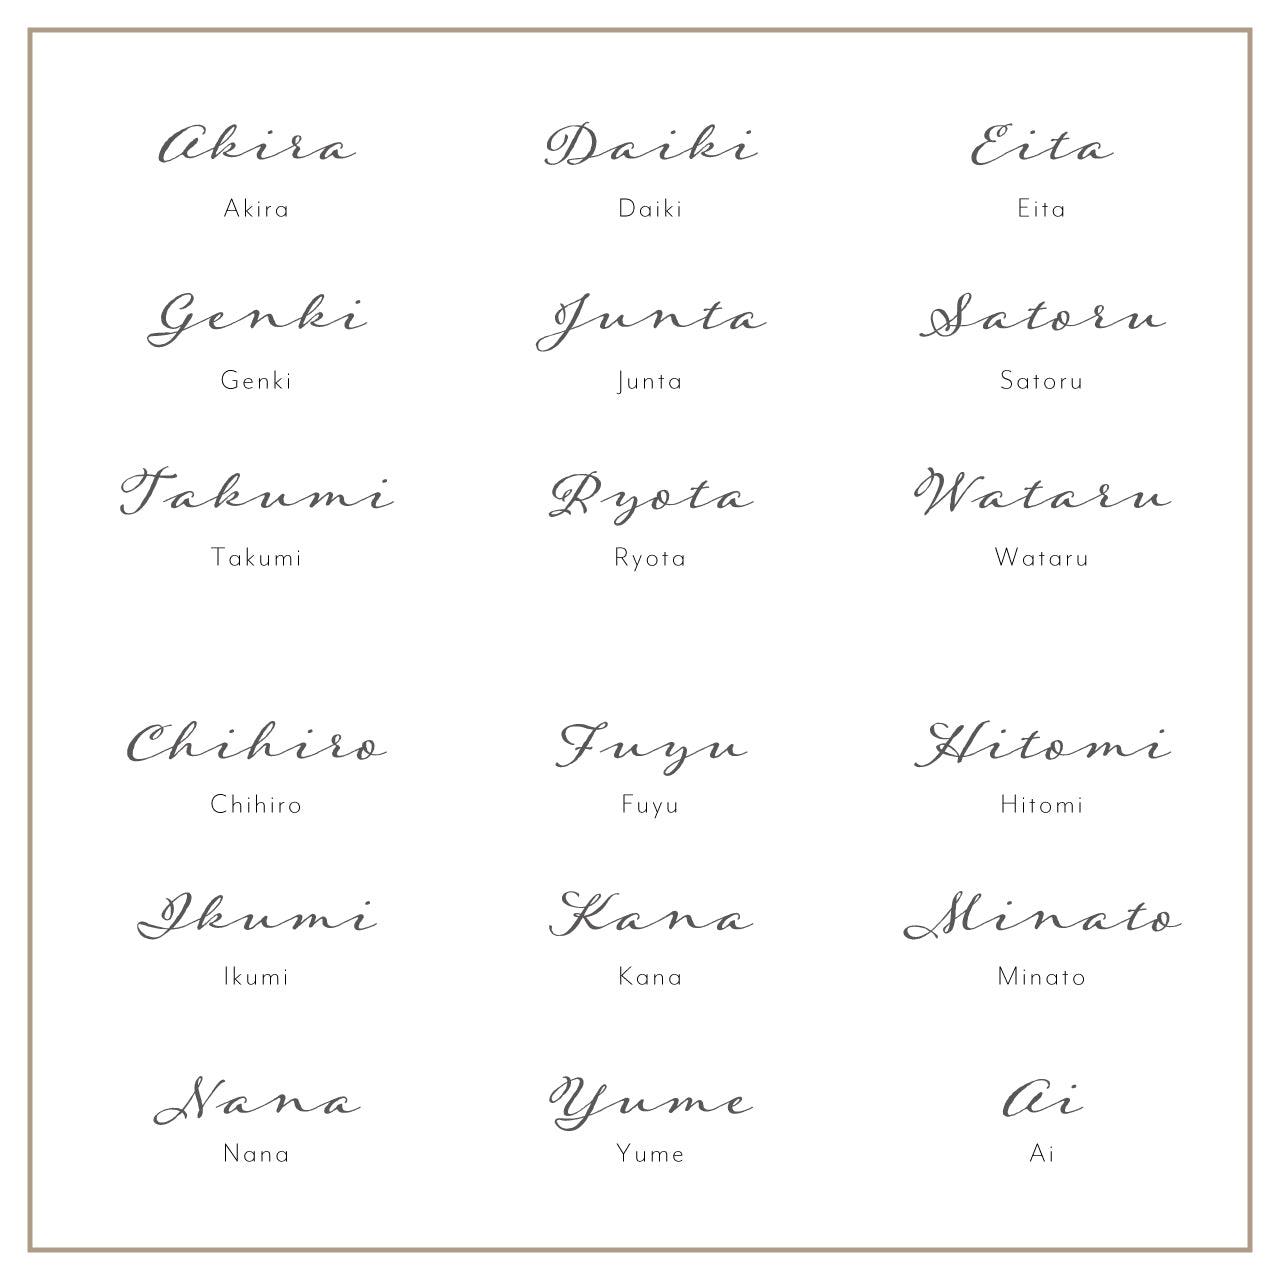 Akira Daiki Eita
Akira Daiki Eita
Genki Junta Satoru
Genki Junta Satoru
Takumi Ryota Wataru
Takumi Ryota Wataru
Chihiro Fuyu Hitomi
Chihiro Fuyu Hitomi
Ikumi Kana Minato
Ikumi Kana Minato
Nana Yume Ai
Nana Yume Ai